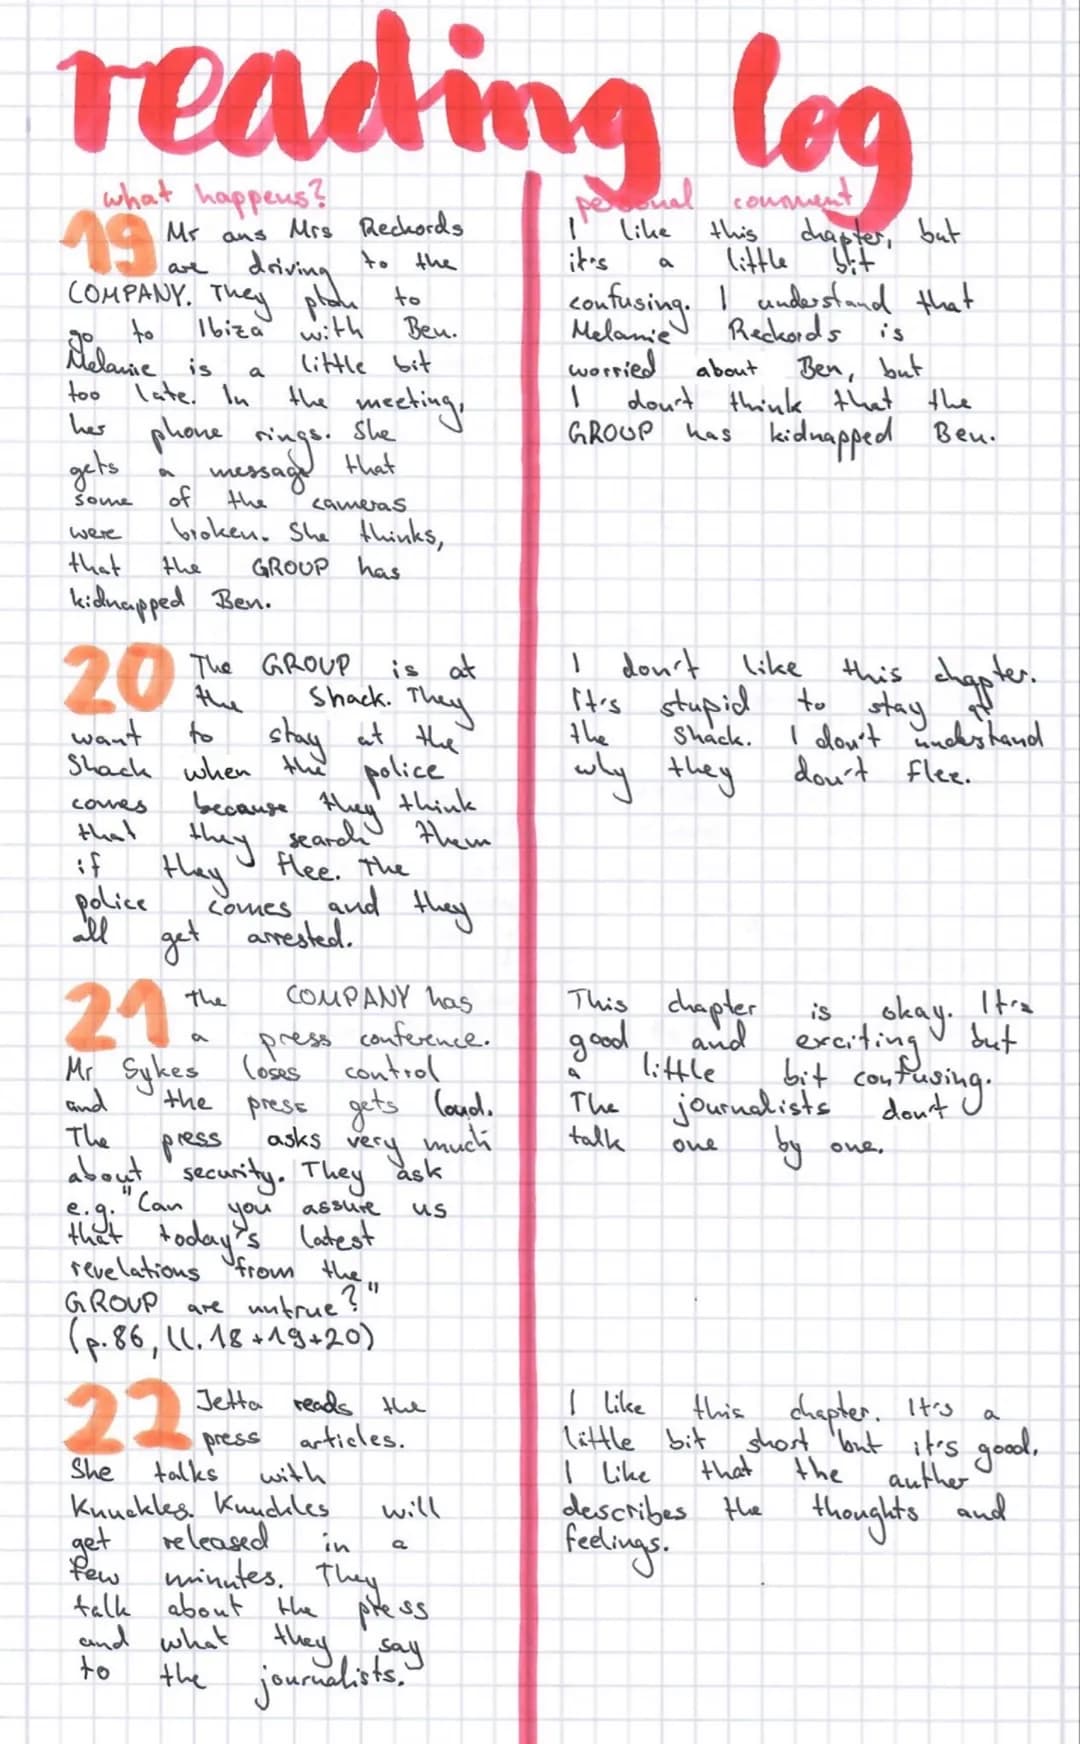 reading log
what happens?
19 Mr ans Mrs Reckords
are driving to the
COMPANY. They plan to
go to Ibiza with Ben.
Melanie is a little bit
too late. In the meeting,
her phone rings. She
gets a message that
some of the cameras
were broken. She thinks,
that the GROUP has
kidnapped Ben.
personal comment
I like this chapter, but
it's a little bit
confusing. I understand that
Melanie Reckords is
worried about Ben, but
I don't think that the
GROUP has kidnapped Ben.
20 The GROUP is at
the Shack. They
want to stay at the
Shack when the police
comes because they think
that they search them
if they flee. The
police comes and they
all get arrested.
I don't like this chapter.
It's stupid to stay at
the Shack. I don't understand
why they don't flee.
21 The COMPANY has
a press conference.
Mr Sykes loses control
and the press gets loud.
The press asks very much
about security. They ask
e.g. "Can you assure us
that today's latest
revelations from the
GROUP are untrue?"
(p.86, ll. 18+19+20)
This chapter is okay. It's
good and exciting but
a little bit confusing.
The journalists don't
talk one by one.
22 Jetta reads the
press articles.
She talks with
Knuckles. Knuckles will
get released in a
few minutes. They
talk about the press
and what they say
to the journalists.
I like this chapter. It's a
little bit short but it's good.
I like that the auther
describes the thoughts and
feelings.